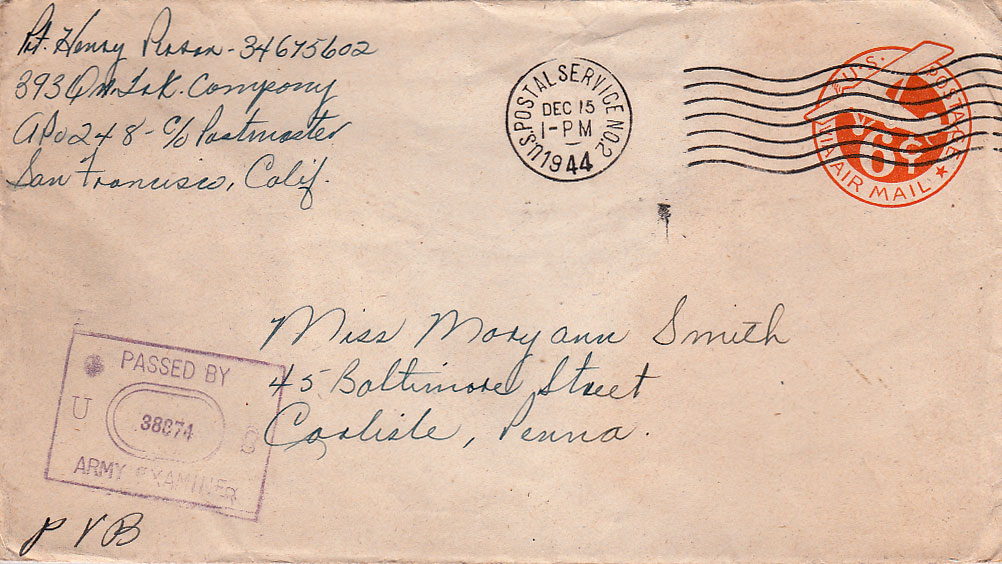 Pvt. Henry Person - 34675602
393 Q.M. Trk. Company
APO 248 - C/o Postmaster
San Francisco, Calif.
U.S. POSTAL SERVICE NO. 2
DEC 15
1-PM
1944
U.S. POSTAGE
6¢
VIA AIR MAIL
Miss Mary ann Smith
45 Baltimore Street
Carlisle, Penna.
PASSED BY
U S
38074
ARMY EXAMINER